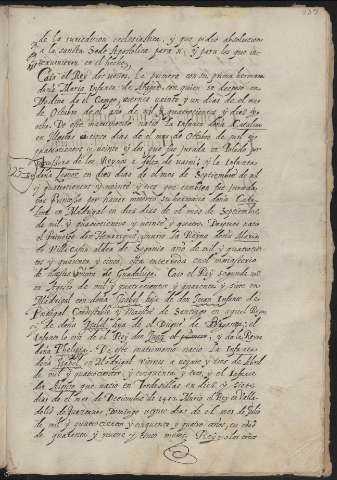 de la jurisdicion ecclesiastica, y que pidio absolucion
a la sancta Sede Apostolica para si, y para los que in-
teruinieron en el hecho.
Caso el Rey dos veces, la primera con su prima hermana
doña Maria Infanta de Aragon con quien se desposo en
Medina de el Campo, viernes veinte y un dias de el mes
de Octubre de el año de mil y quatrocientos y diez y
ocho. De este matrimonio nacio la Infanta doña Catalina
en Illescas a cinco dias de el mes de Octubre de mil y
quatrocientos y veinte y dos que fue jurada en Toledo por
de los Reynos a falta de varon, y la Infanta
doña Leonor en diez dias de el mes de Septiembre de mil
y quatrocientos y veinte y tres que tambien fue jurada
por Princesa por hauer muerto su hermana doña Cata-
lina en Madrigal en diez dias de el mes de Septiembre
de mil y quatrocientos y veinte y quatro. Despues nacio
el Principe don Henrrique, y murio la Reyna doña Maria
en Villacastin aldea de Segouia año de mil y quatrocien-
tos y quarenta y cinco, esta enterrada en el monasterio
de Guadalupe. Caso el Rey segunda vez
en Agosto de mil y quatrocientos y quarenta y siete en
Madrigal con doña Isabel hija de don Juan Infante de
Portugal Condestable y Maestre de Santiago en aquel Reyno
y de doña Isabel hija de el Duque de Bragança; el
Infante lo era de el Rey don Juan el primero, y de la Reyna
doña Phelippa. De este matrimonio nacio la Infanta
doña Isabel en Madrigal viernes a veynte y tres de Abril
de mil y quatrocientos y cinquenta y tres, y el Infante
don Alonso que nacio en Tordesillas en diez y siete
dias de el mes de Deciembre de 1453. Murio el Rey en Valla-
dolid de quartanas, Domingo veynte dias de el mes de Julio
de mil y quatrocientos y cinquenta y quatro años, en edad
de quarenta y nueve y cinco meses. Reyno los años